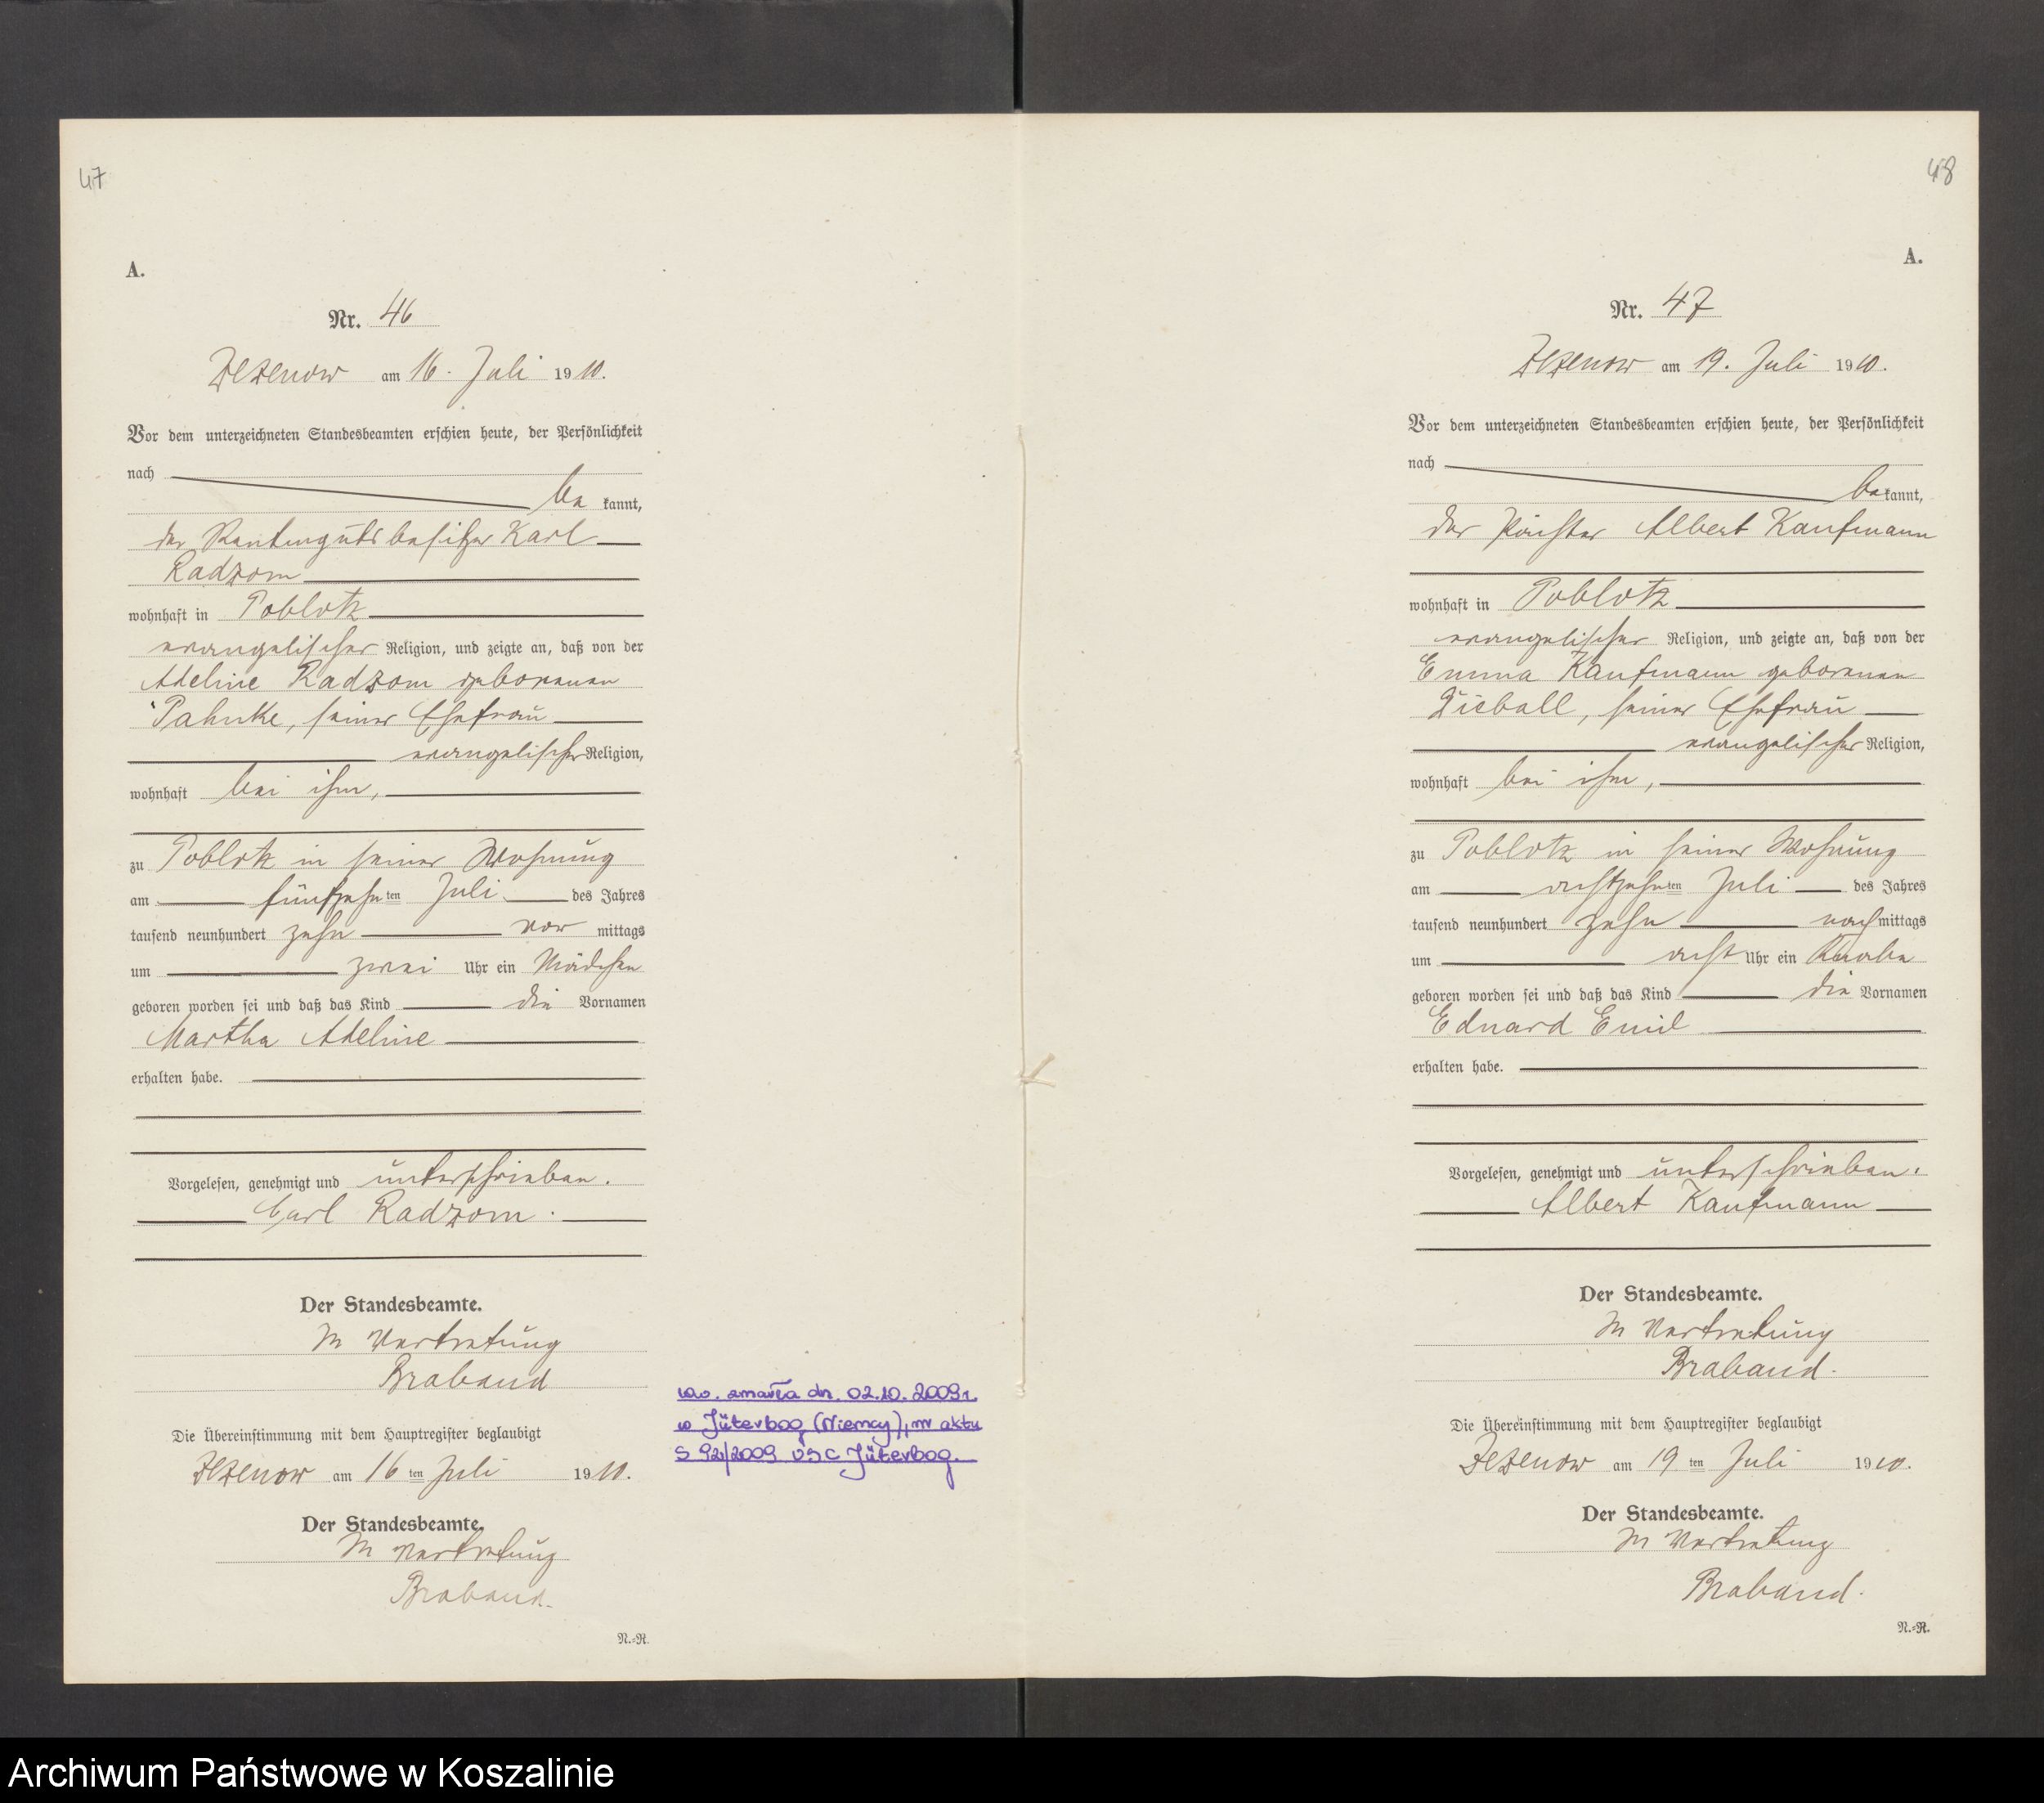 47
A.
Nr. 46
Zezenow am 16. Juli 1910.
Vor dem unterzeichneten Standesbeamten erschien heute, der Persönlichkeit
nach
be kannt,
der Rentengutsbesitzer Karl
Radzom
wohnhaft in Poblotz
evangelischer Religion, und zeigte an, daß von der
Adeline Radzom geborenen
Pahnke, seiner Ehefrau
evangelischer Religion,
wohnhaft bei ihm,
zu Poblotz in seiner Wohnung
am fünfzehnten Juli des Jahres
tausend neunhundert zehn vor mittags
um zwei Uhr ein Mädchen
geboren worden sei und daß das Kind die Vornamen
Martha Adeline
erhalten habe.
Vorgelesen, genehmigt und unterschrieben.
Carl Radzom.
Der Standesbeamte.
In Vertretung
Braband
Die Übereinstimmung mit dem Hauptregister beglaubigt
Zezenow am 16 ten Juli 1910.
Der Standesbeamte.
In Vertretung
Braband.
N.-R.
ww. zmarła dn. 02.10.2009r.
w Jüterbog (Niemcy), nr aktu
S 92/2009 USC Jüterbog.
48
A.
Nr. 47
Zezenow am 19. Juli 1910.
Vor dem unterzeichneten Standesbeamten erschien heute, der Persönlichkeit
nach
be kannt,
der Pächter Albert Kaufmann
wohnhaft in Poblotz
evangelischer Religion, und zeigte an, daß von der
Emma Kaufmann geborenen
Zieball, seiner Ehefrau
evangelischer Religion,
wohnhaft bei ihm,
zu Poblotz in seiner Wohnung
am achtzehnten Juli des Jahres
tausend neunhundert zehn nach mittags
um acht Uhr ein Knabe
geboren worden sei und daß das Kind die Vornamen
Eduard Emil
erhalten habe.
Vorgelesen, genehmigt und unterschrieben.
Albert Kaufmann
Der Standesbeamte.
In Vertretung
Braband.
Die Übereinstimmung mit dem Hauptregister beglaubigt
Zezenow am 19 ten Juli 1910.
Der Standesbeamte.
In Vertretung
Braband.
N.-R.
Archiwum Państwowe w Koszalinie